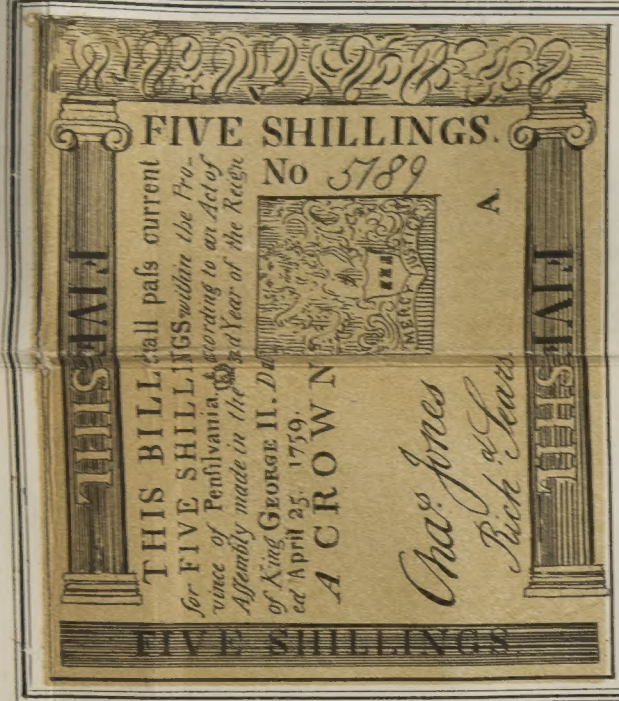 FIVE SHILLINGS.
No 5189
THIS BILL ſhall paſs current
for FIVE SHILLINGS within the Pro-
vince of Penſilvania, according to an Act of
Aſſembly made in the 33d Year of the Reign
of King GEORGE II. Dat-
ed April 25. 1759.
A CROWN
MERCY JUSTICE
A.
Chaˢ Jones
Richᵈ Sears.
FIVE SHILL
FIVE SHILL
FIVE SHILLINGS.